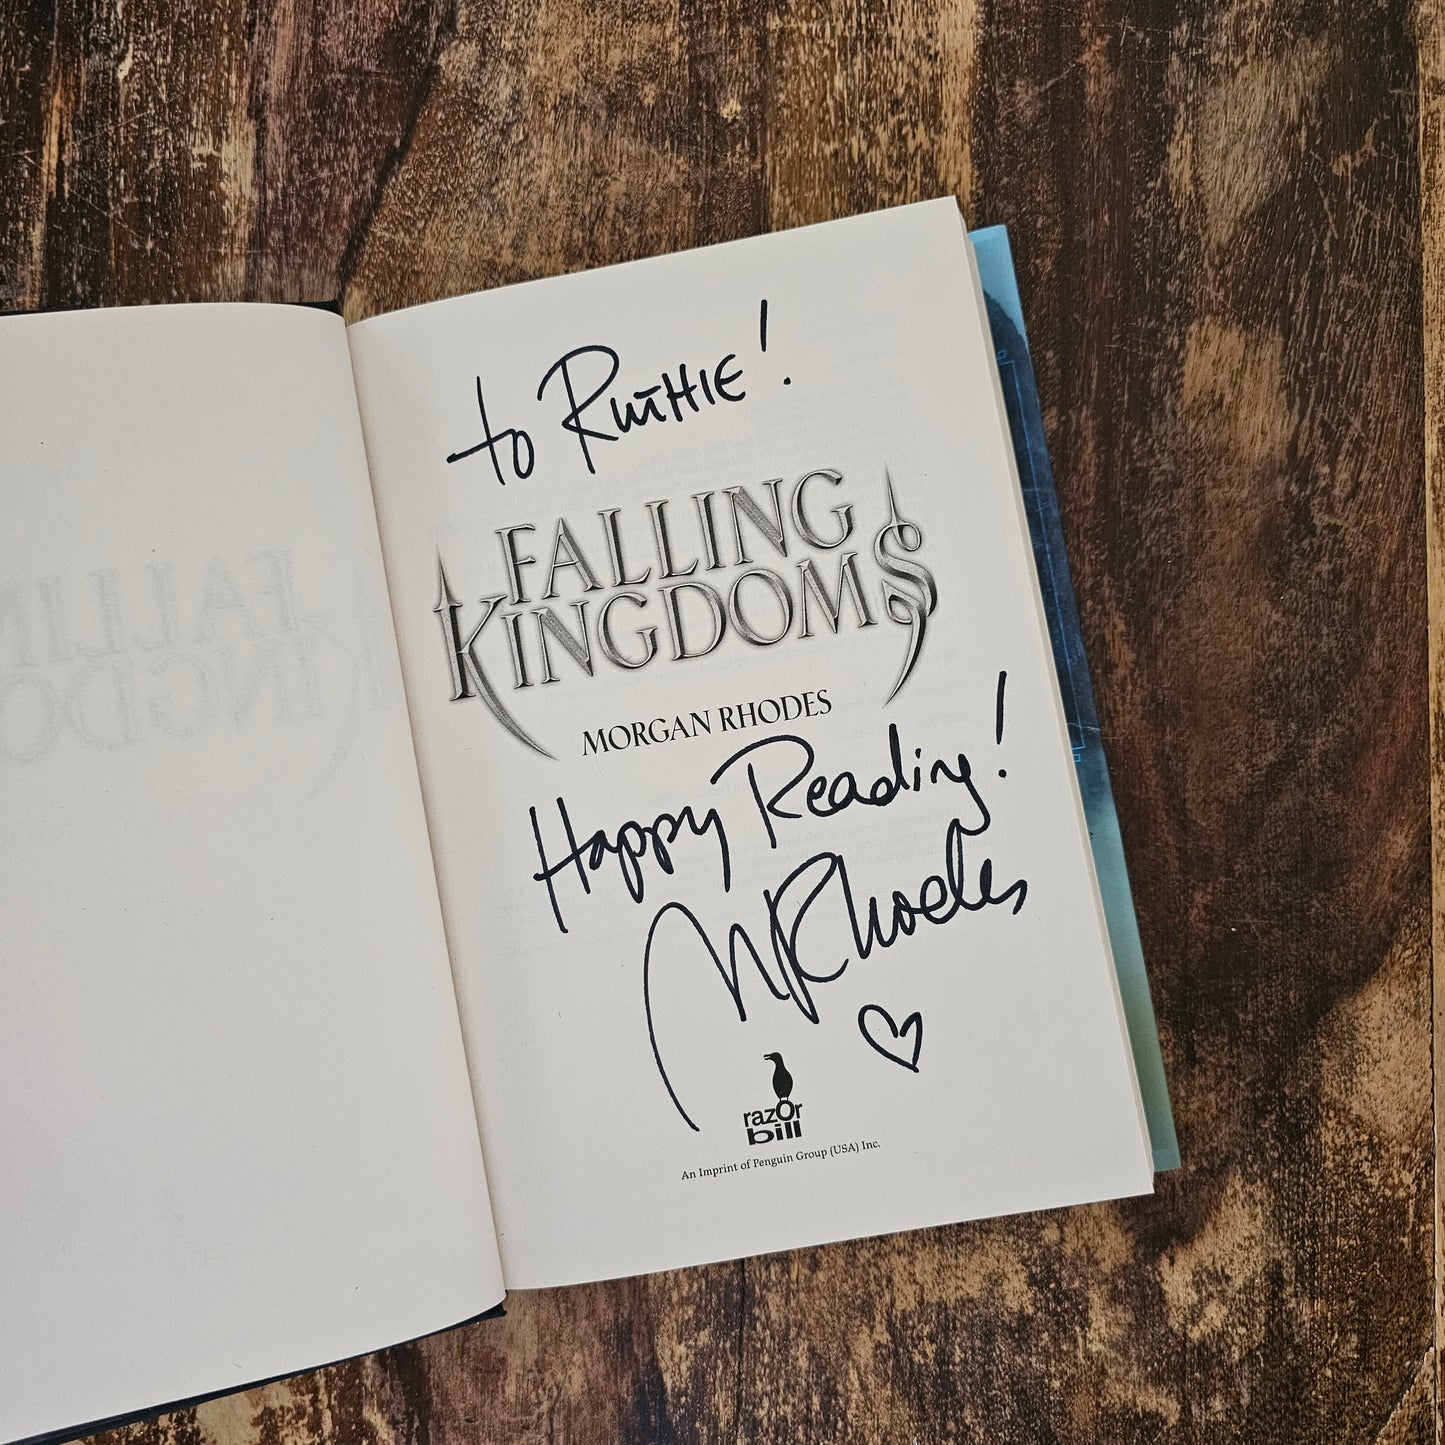 to RUTHIE!
FALLING
KINGDOMS
MORGAN RHODES
Happy Reading!
MRhodes
razOr
bill
An Imprint of Penguin Group (USA) Inc.